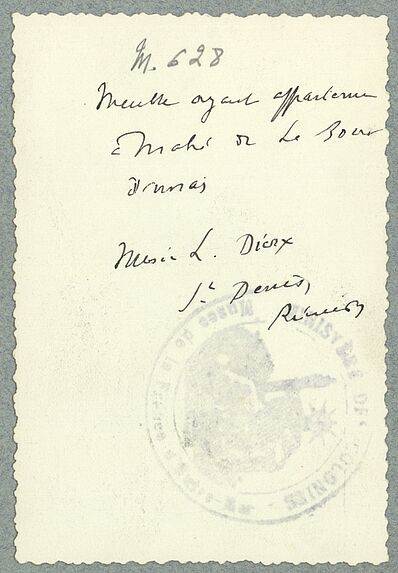 M. 628
Meuble ayant appartenu
à Mahé de La Bour
donnais
Musée L. Dierx
St Denis,
Réunion
MINISTÈRE DES COLONIES
Musée de la France